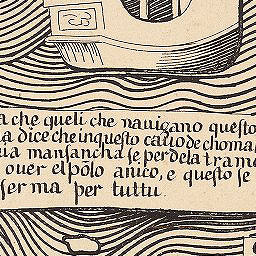 a che queli che nauigano questo
a dice che in questo cauo de choma
ia mansancha se perde la tram
ouer el polo antico, e questo se
ser ma per tuttu.